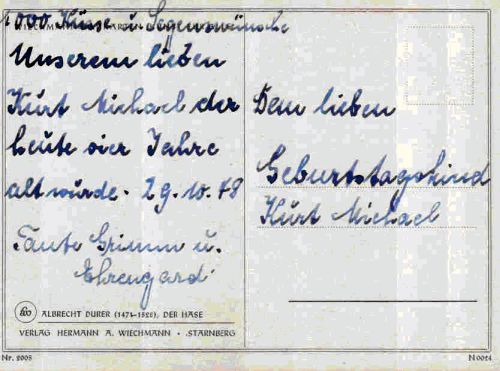 1000 Küsse u. Segenswünsche
Unserem lieben
Kurt Michael der
heute vier Jahre
alt wurde. 29.10.48
Tante Grimm u.
Ehrengard
Dem lieben
Geburtstagskind
Kurt Michael
ALBRECHT DURER (1474-1528), DER HASE
VERLAG HERMANN A. WIECHMANN · STARNBERG
Nr. 2008
N 0024